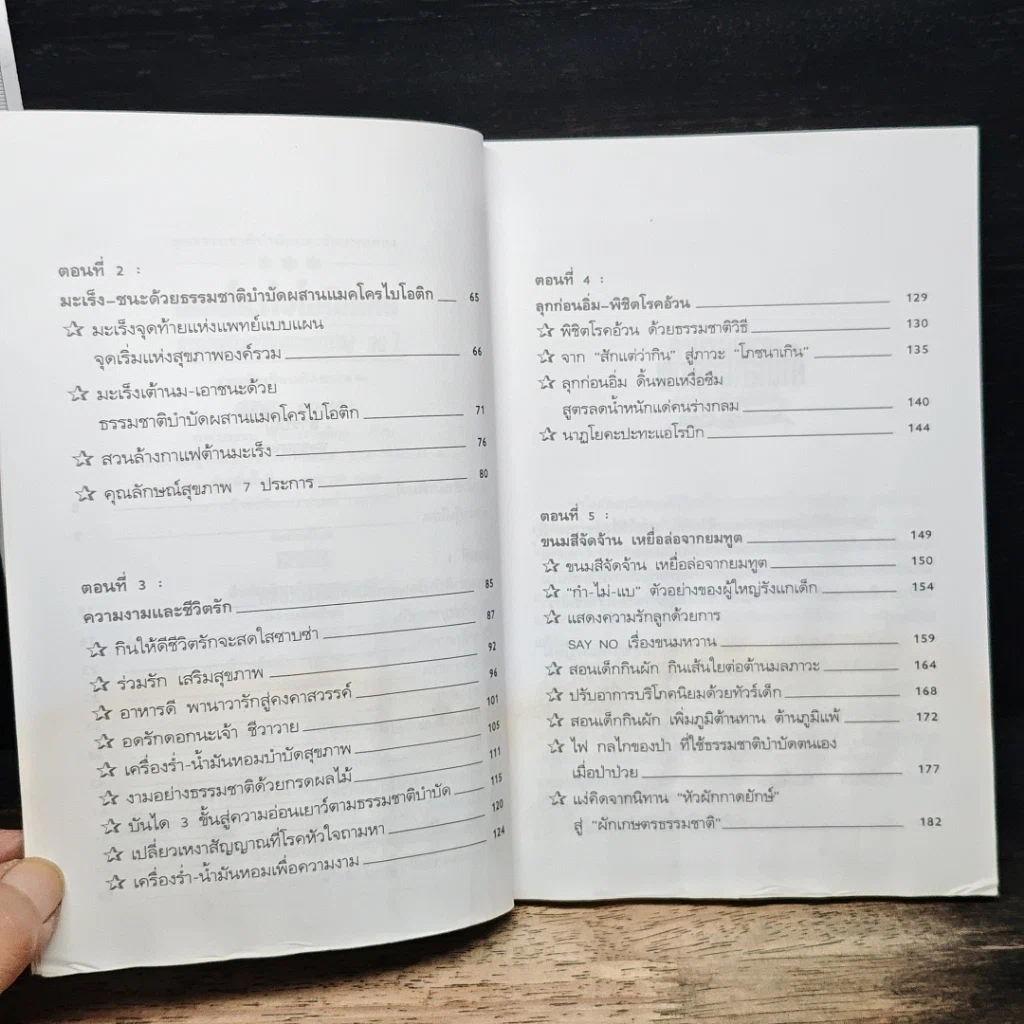 ตอนที่ 2 :
มะเร็ง-ชนะด้วยธรรมชาติบำบัดผสานแมคโครไบโอติก 65
☆ มะเร็งจุดท้ายแห่งแพทย์แบบแผน
จุดเริ่มแห่งสุขภาพองค์รวม 66
☆ มะเร็งเต้านม-เอาชนะด้วย
ธรรมชาติบำบัดผสานแมคโครไบโอติก 71
☆ สวนล้างกาแฟต้านมะเร็ง 76
☆ คุณลักษณ์สุขภาพ 7 ประการ 80
ตอนที่ 3 :
ความงามและชีวิตรัก 85
☆ กินให้ดีชีวิตรักจะสดใสซาบซ่า 87
☆ ร่วมรัก เสริมสุขภาพ 92
☆ อาหารดี พานาวารักสู่คงคาสวรรค์ 96
☆ อดรักดอกนะเจ้า ชีวาวาย 101
☆ เครื่องร่ำ-น้ำมันหอมบำบัดสุขภาพ 105
☆ งามอย่างธรรมชาติด้วยกรดผลไม้ 111
☆ บันได 3 ขั้นสู่ความอ่อนเยาว์ตามธรรมชาติบำบัด 115
☆ เปลี่ยวเหงาสัญญาณที่โรคหัวใจถามหา 120
☆ เครื่องร่ำ-น้ำมันหอมเพื่อความงาม 124
ตอนที่ 4 :
ลุกก่อนอิ่ม-พิชิตโรคอ้วน 129
☆ พิชิตโรคอ้วน ด้วยธรรมชาติวิธี 130
☆ จาก "สักแต่ว่ากิน" สู่ภาวะ "โภชนาเกิน" 135
☆ ลุกก่อนอิ่ม ดิ้นพอเหงื่อซึม
สูตรลดน้ำหนักแด่คนร่างกลม 140
☆ นาฏโยคะปะทะแอโรบิก 144
ตอนที่ 5 :
ขนมสีจัดจ้าน เหยื่อล่อจากยมทูต 149
☆ ขนมสีจัดจ้าน เหยื่อล่อจากยมทูต 150
☆ "กำ-ไม่-แบ" ตัวอย่างของผู้ใหญ่รังแกเด็ก 154
☆ แสดงความรักลูกด้วยการ
SAY NO เรื่องขนมหวาน 159
☆ สอนเด็กกินผัก กินเส้นใยต่อต้านมลภาวะ 164
☆ ปรับอาการบริโภคนิยมด้วยทัวร์เด็ก 168
☆ สอนเด็กกินผัก เพิ่มภูมิต้านทาน ต้านภูมิแพ้ 172
☆ ไฟ กลไกของป่า ที่ใช้ธรรมชาติบำบัดตนเอง
เมื่อป่าป่วย 177
☆ แง่คิดจากนิทาน "หัวผักกาดยักษ์"
สู่ "ผักเกษตรธรรมชาติ" 182